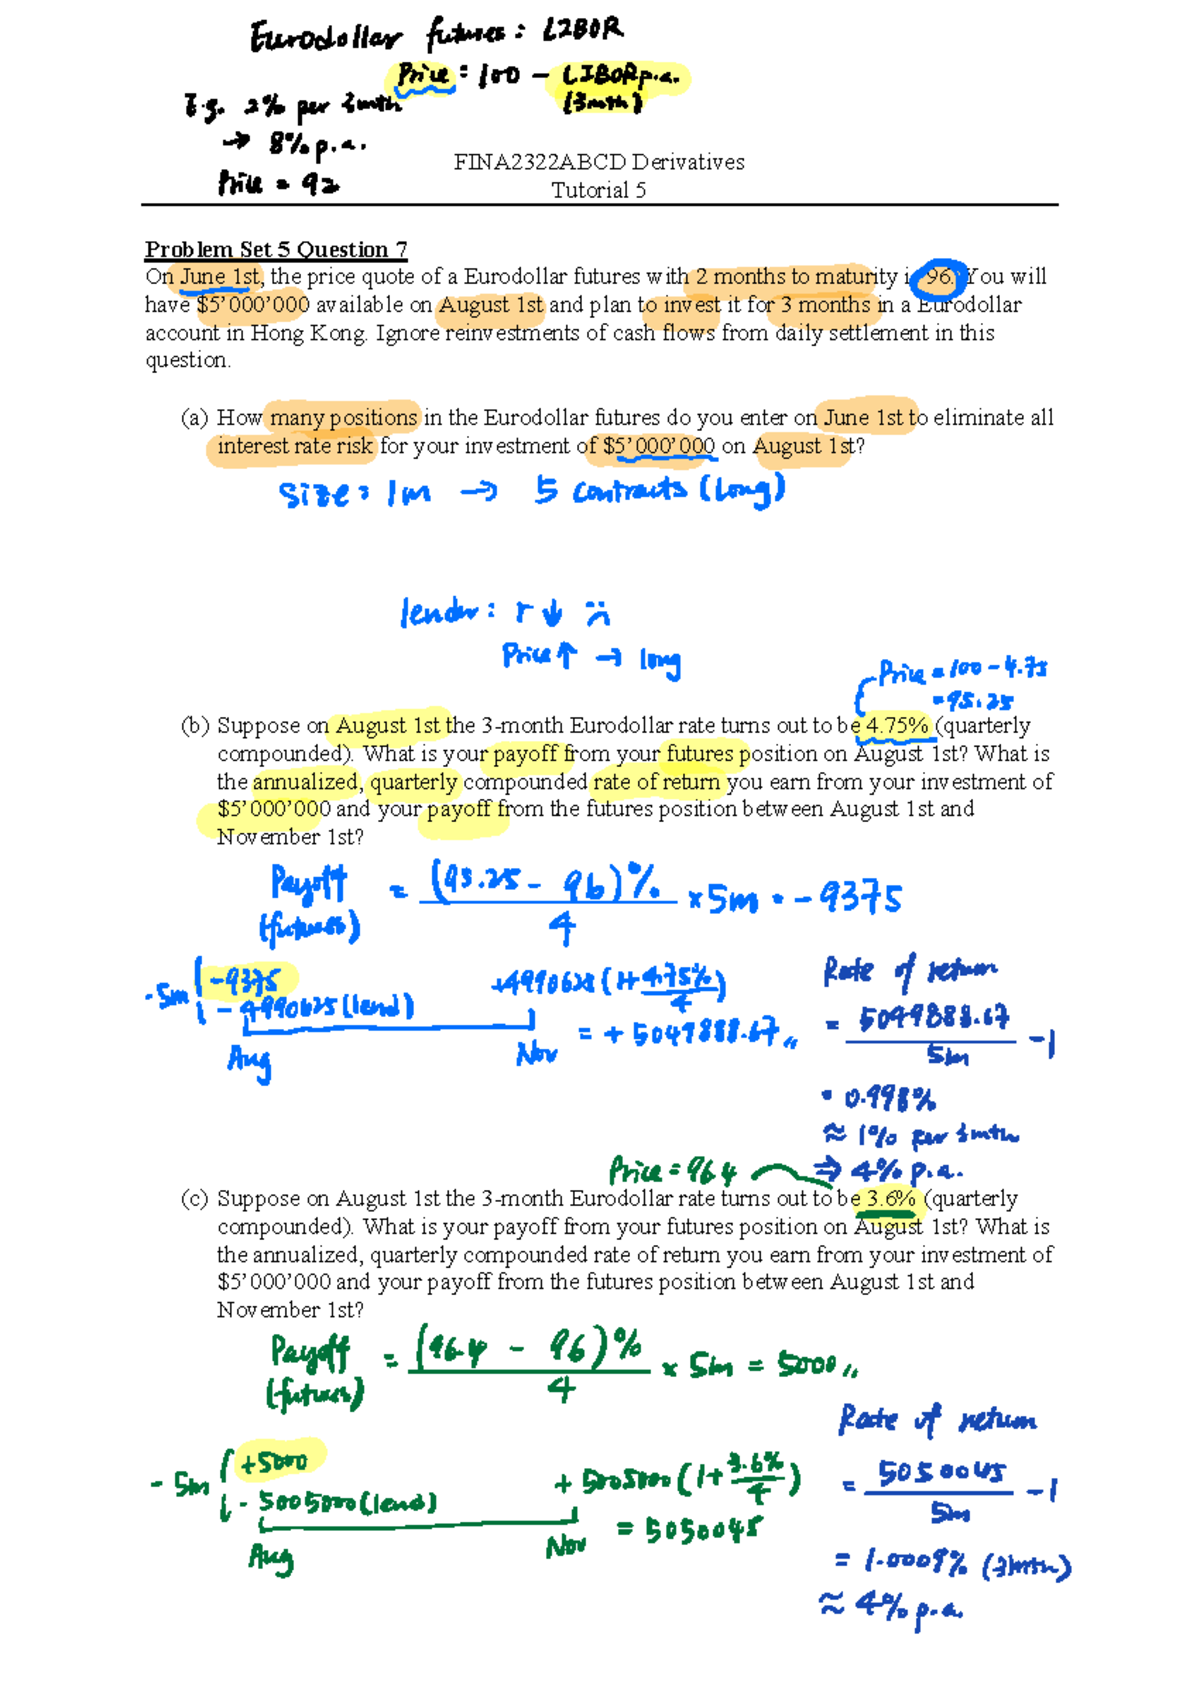 Eurodollar futures: LIBOR
Price = 100 - LIBOR p.a.
(3mth)
E.g. 2% per 3mth
→ 8% p.a.
Price = 92
FINA2322ABCD Derivatives
Tutorial 5
Problem Set 5 Question 7
On June 1st, the price quote of a Eurodollar futures with 2 months to maturity is 96. You will
have $5’000’000 available on August 1st and plan to invest it for 3 months in a Eurodollar
account in Hong Kong. Ignore reinvestments of cash flows from daily settlement in this
question.
(a) How many positions in the Eurodollar futures do you enter on June 1st to eliminate all
interest rate risk for your investment of $5’000’000 on August 1st?
Size: 1m → 5 contracts (long)
lender: r ↓ :(
Price ↑ → long
Price = 100 - 4.75
= 95.25
(b) Suppose on August 1st the 3-month Eurodollar rate turns out to be 4.75% (quarterly
compounded). What is your payoff from your futures position on August 1st? What is
the annualized, quarterly compounded rate of return you earn from your investment of
$5’000’000 and your payoff from the futures position between August 1st and
November 1st?
Payoff (futures) = (95.25 - 96)% / 4 × 5m = -9375
-5m { -9375
- 4990625 (lend)
Aug
+4990625 (1+ 4.75% / 4)
= + 5049888.67 〃
Nov
Rate of return
= 5049888.67 / 5m - 1
= 0.998%
≈ 1% per 3mth
⇒ 4% p.a.
Price = 96.4
(c) Suppose on August 1st the 3-month Eurodollar rate turns out to be 3.6% (quarterly
compounded). What is your payoff from your futures position on August 1st? What is
the annualized, quarterly compounded rate of return you earn from your investment of
$5’000’000 and your payoff from the futures position between August 1st and
November 1st?
Payoff (futures) = (96.4 - 96)% / 4 × 5m = 5000 〃
- 5m { +5000
- 5005000 (lend)
Aug
+ 5005000 (1+ 3.6% / 4)
= 5050045
Nov
Rate of return
= 5050045 / 5m - 1
= 1.0009% (3mth)
≈ 4% p.a.